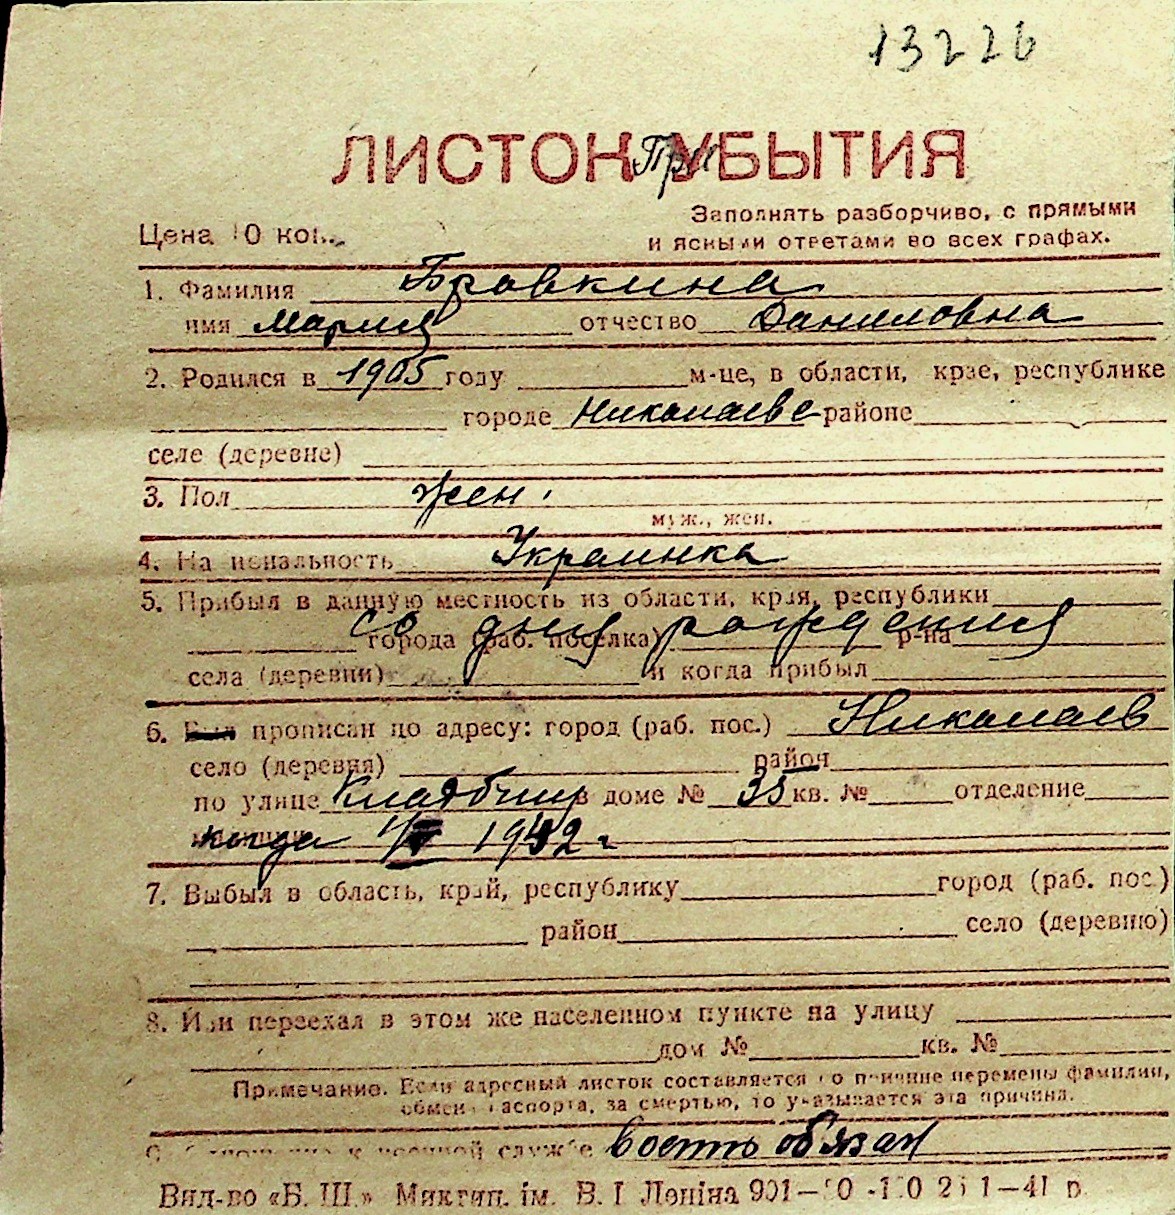 13226
ЛИСТОК При УБЫТИЯ
Заполнять разборчиво, с прямыми
Цена 10 коп.
и ясными ответами во всех графах.
1. Фамилия Бровкина
имя Мария отчество Даниловна
2. Родился в 1905 году м-це, в области, крае, республике
городе Николаеве районе
селе (деревне)
3. Пол жен.
муж., жен.
4. Национальность Украинка
5. Прибыл в данную местность из области, края, республики
со дня рождения
города (раб. поселка) р-на
села (деревни) и когда прибыл
6. Был прописан по адресу: город (раб. пос.) Николаев
село (деревня) район
по улице в доме № 35 кв. № отделение
когда 1942 г.
7. Выбыл в область, край, республику город (раб. пос.)
район село (деревню)
8. Или переехал в этом же населенном пункте на улицу
дом № кв. №
Примечание. Если адресный листок составляется по причине перемены фамилии,
обмена паспорта, за смертью, то указывается эта причина.
к военной службе
Вид-во «Б. Ш.» Миктип. ім. В. І Леніна